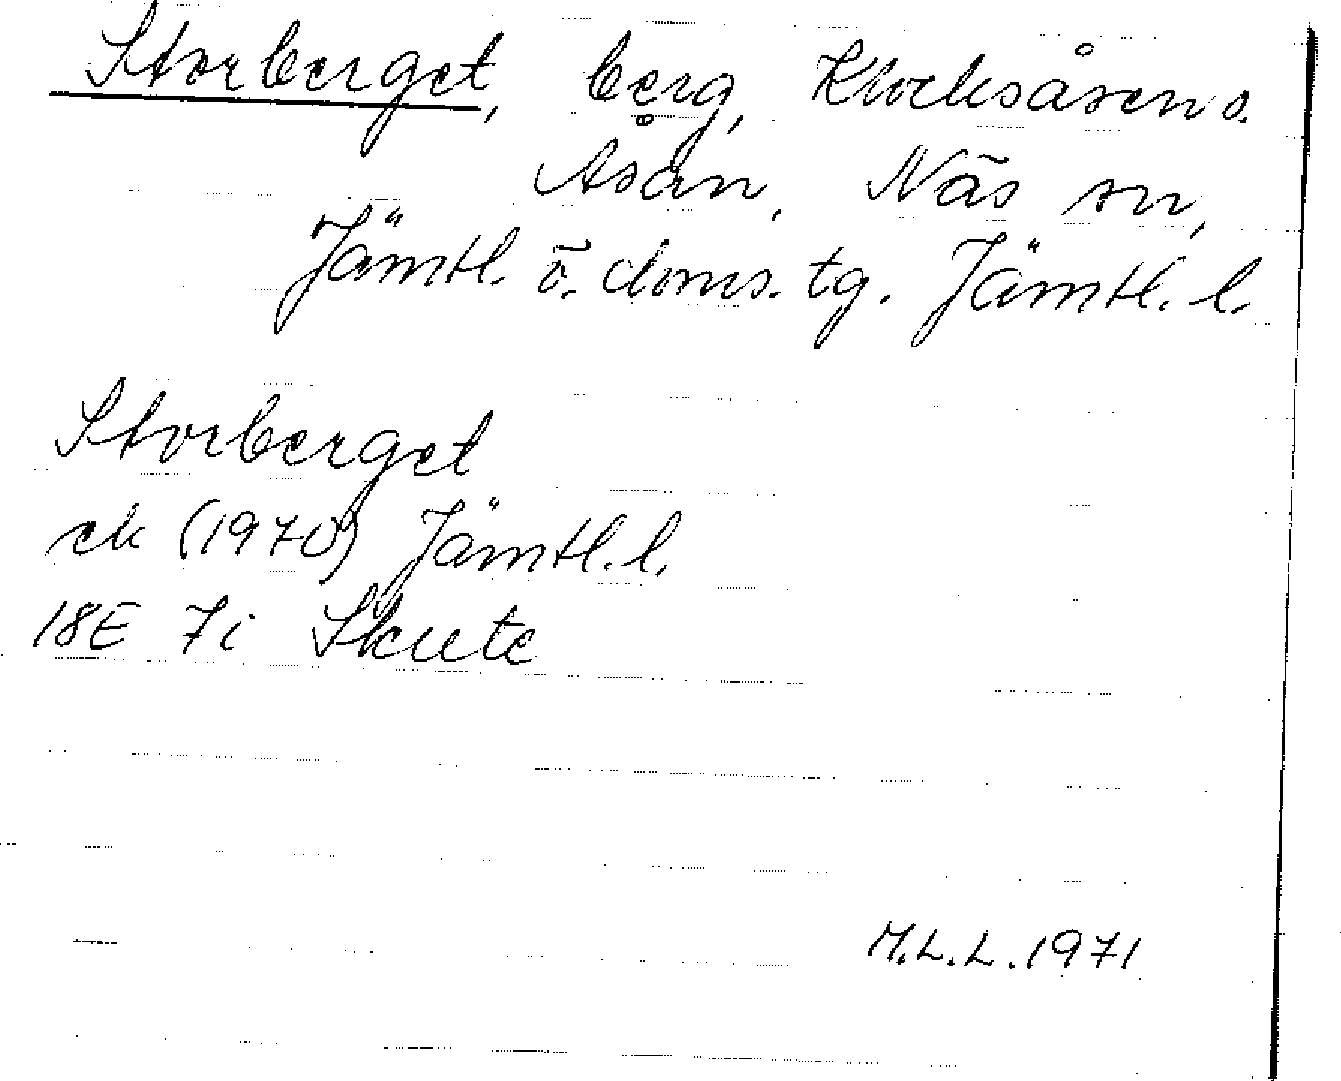 Storberget, berg, Klocksåsen o.
Åsan, Näs sn,
Jämtl. ö. doms. tg. Jämtl. l.
Storberget
ek (1970) Jämtl. l.
18E 7i Skute
M.L.L. 1971